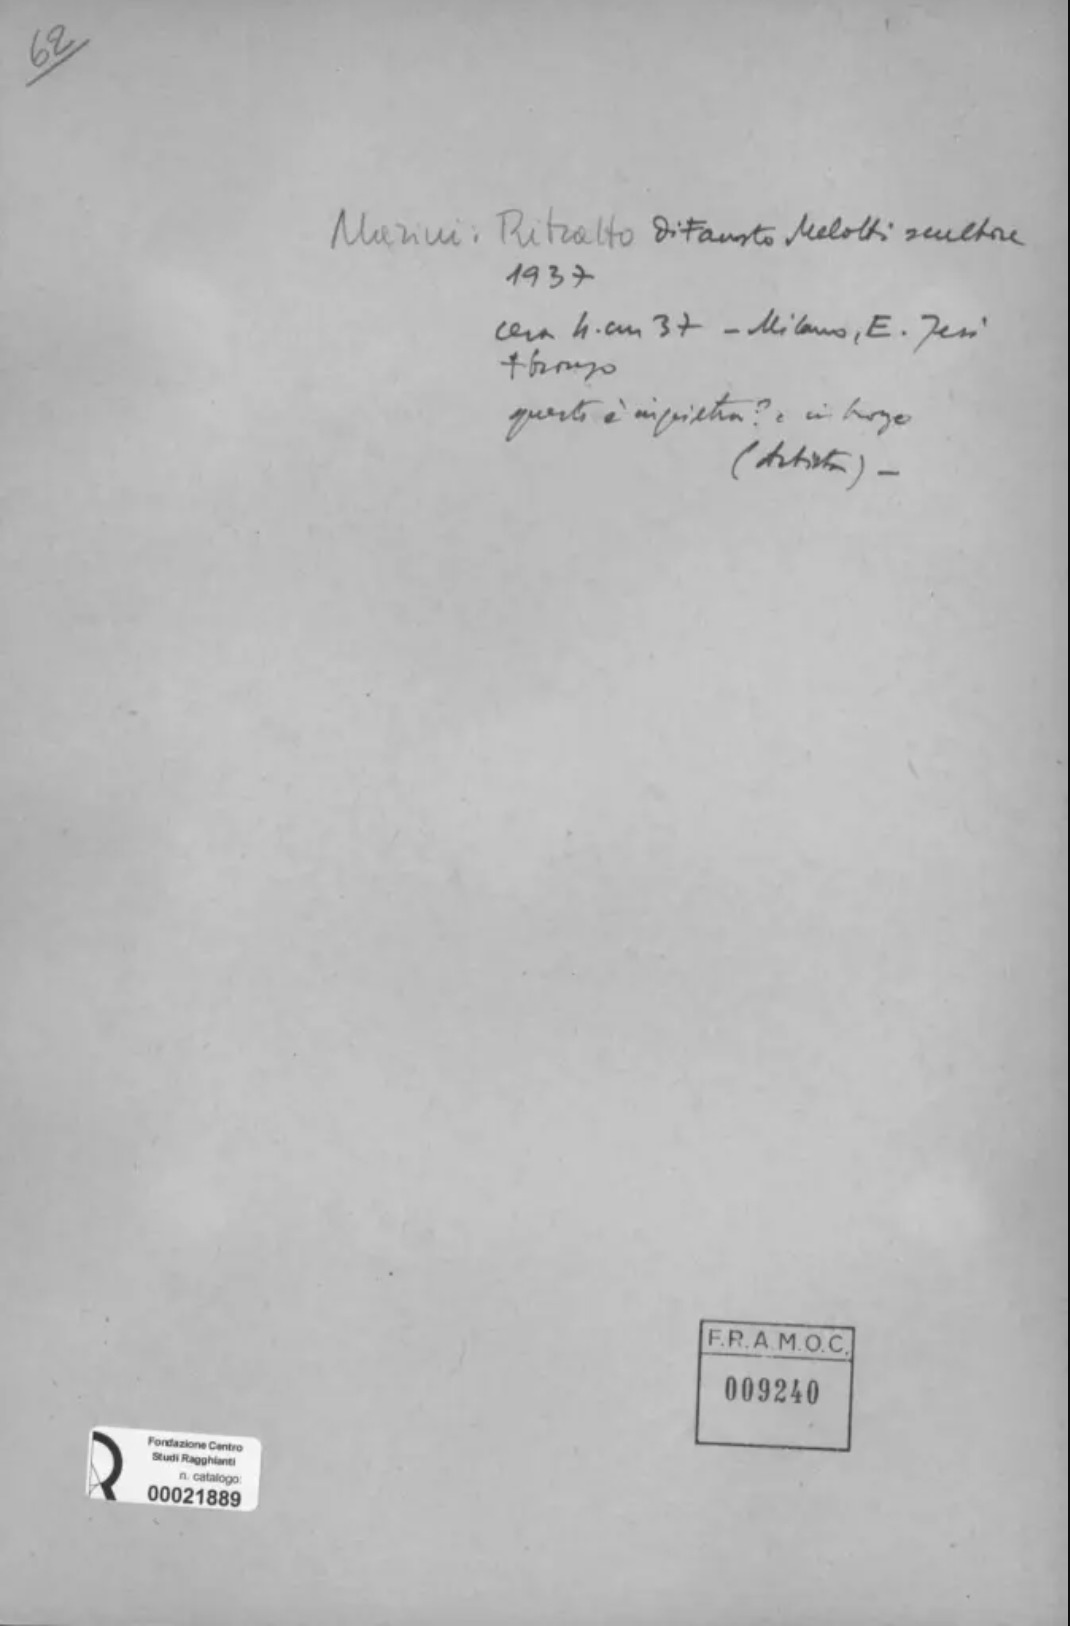 62
Marini: Ritratto di Fausto Melotti scultore
1937
cera h. cm 37 – Milano, E. Jesi
+ bronzo
questo è in pietra? e in bronzo
(Artista) –
F.R.A.M.O.C.
009240
Fondazione Centro
Studi Ragghianti
n. catalogo:
00021889